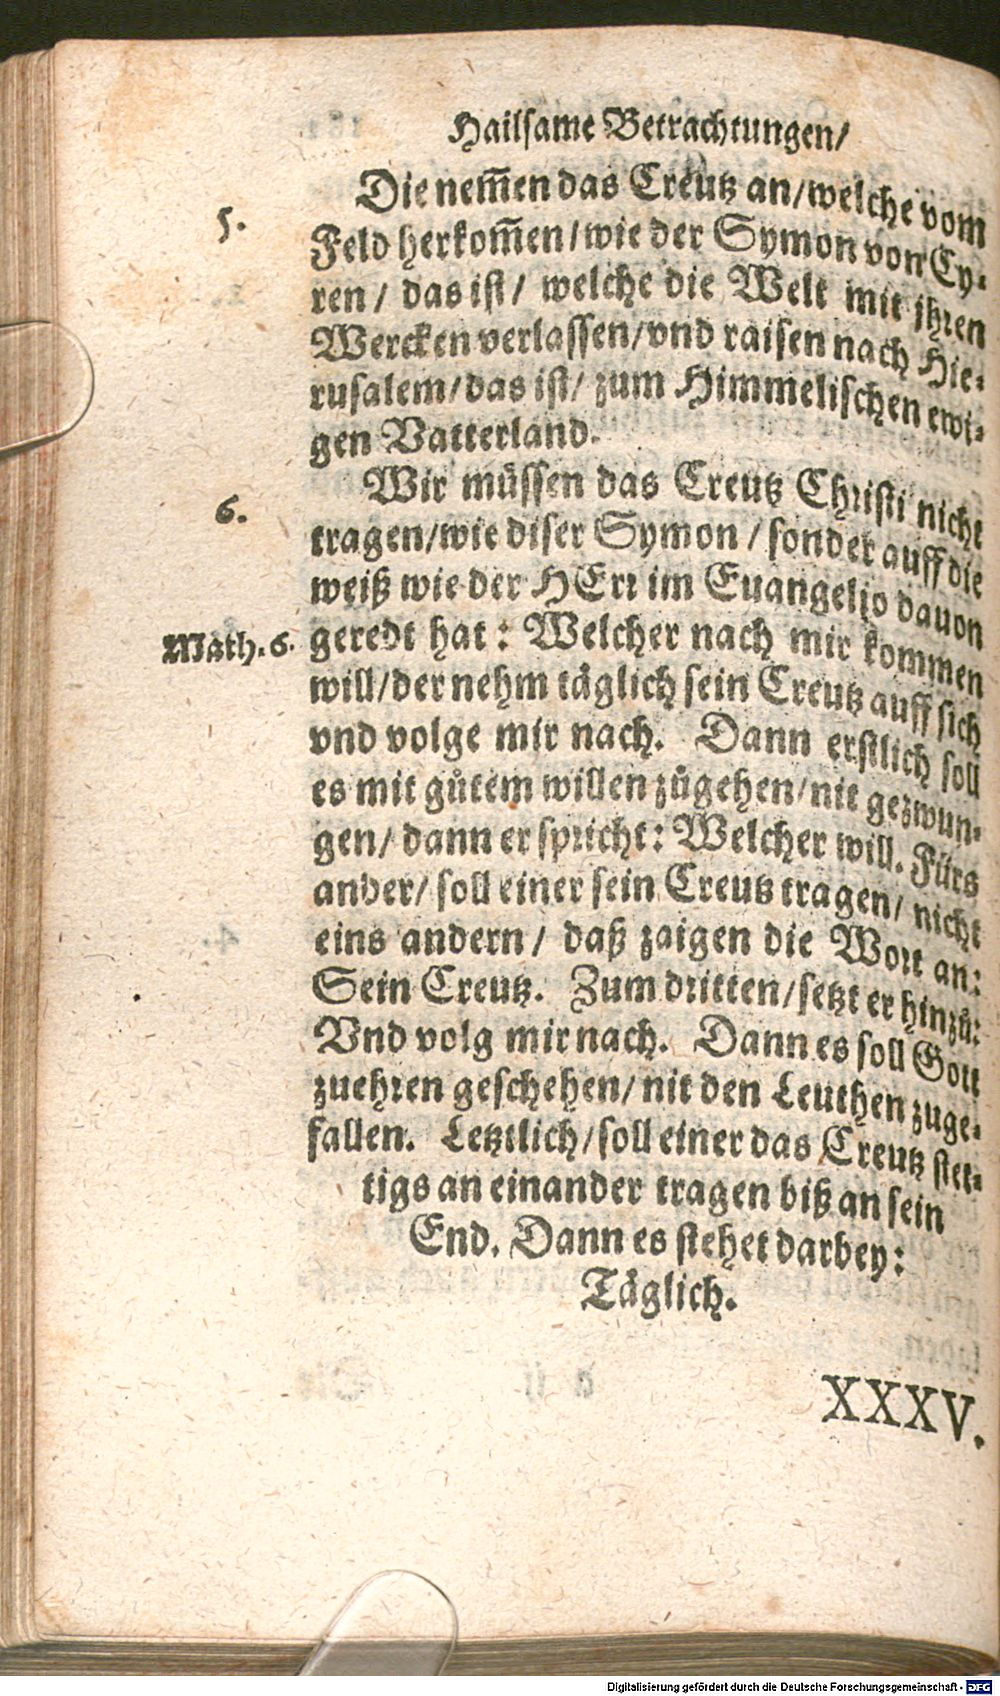 Hailsame Betrachtungen/
5. Die nem̃en das Creutz an/welche vom
Feld herkom̃en/wie der Symon von Cy-
ren/ das ist/ welche die Welt mit jhren
Wercken verlassen/vnd raisen nach Hie-
rusalem/das ist/ zum Himmelischen ewi-
gen Vatterland.
6. Wir müssen das Creutz Christi nicht
tragen/wie diser Symon/sonder auff die
weiß wie der HErr im Euangelio dauon
Math. 6. geredt hat: Welcher nach mir kommen
will/der nehm täglich sein Creutz auff sich
vnd volge mir nach. Dann erstlich soll
es mit gůtem willen zůgehen/nit gezwun-
gen/ dann er spricht: Welcher will. Fürs
ander/ soll einer sein Creutz tragen/ nicht
eins andern/ daß zaigen die Wort an:
Sein Creutz. Zum dritten/setzt er hinzů:
Vnd volg mir nach. Dann es soll Gott
zuehren geschehen/nit den Leuthen zuge-
fallen. Letztlich/soll einer das Creutz stet-
tigs an einander tragen biß an sein
End. Dann es stehet darbey:
Täglich.
XXXV.
Digitalisierung gefördert durch die Deutsche Forschungsgemeinschaft - DFG